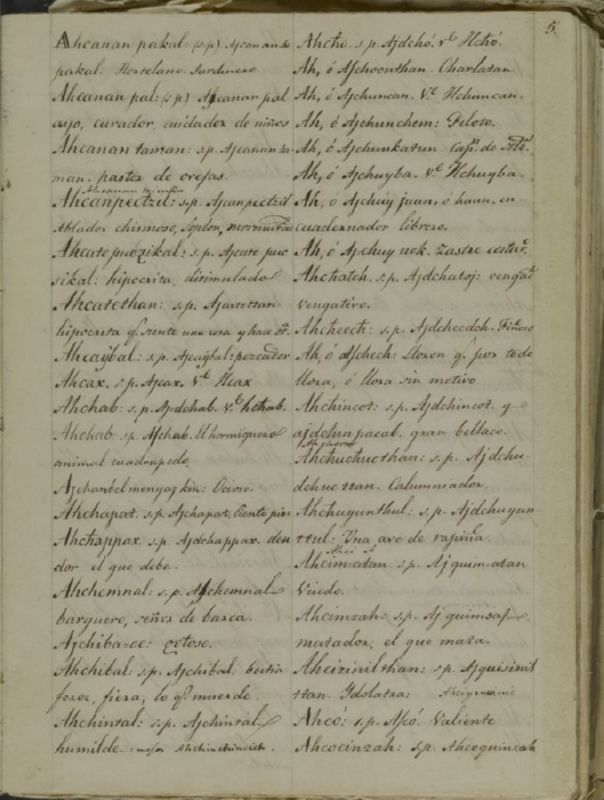 5.
Ahcanan pakal: (s.p) Ajcanan de
pakal. Hortelano Jardinero
Ahcanan pal: (s.p) Ajcanan pal
ayo, curador, cuidador de niños
Ahcanan taman: s.p. Ajcanan ta-
man. pastor de ovejas.
Ahcanpectzil: s.p. Ajcanpectzil
ablador chismoso, soplon,
Ahcatepuczikal: s.p. Ajcate puc
sikal: hipocrita, disimulado
Ahcatethan: s.p.
hipocrita q.e siente una cosa y hace
Ahcaybal: s.p. Ajcaybal: pescador
Ahcax. s.p. Ajcax. V.e Hcax
Ahchab: s.p. Ajdchab. V.e hchab.
Ahchab s.p. Ajchab. El hormiguero
animal cuadrupedo.
Ajchanbel menyag kin: Ocioso.
Ahchapat. s.p. Ajchapat, Ciento pies
Ahchappax. s.p. Ajdchappax. deu
dor el que debe.
Ahchemnal: s.p. Ajchemnal
barquero, señor de barca.
Ajchiba-oc: gotoso.
Ahchibal: s.p. Ajchibal. bestia
feroz, fiera, lo q.e muerde.
Ahchintal: s.p. Ajchintal
humilde. mejor
Ahcho. s.p. Ajdchó. V.e Hchó.
Ah, ó Ajchoonthan Charlatan
Ah, ó Ajchuncan. V.e Hchuncan.
Ah, ó Ajchunchem: Piloto.
Ah, ó Ajchunkatun Cap.n de
Ah, ó Ajchuyba. V.e Hchuyba.
Ah, ó Ajchuy juun, ó huun. en-
cuadernador librero.
Ah, ó Ajchuy nok. Zastre
Ahchatoh. s.p. Ajdchatoj: vengat
vengativo.
Ahcheech: s.p. Ajdcheech.
Ah, ó Ajchech: Lloron q.e por todo
llora, ó llora sin motivo
Ahchincot: s.p. Ajdchincot. y
ajdchinpacab. gran bellaco.
Ahchuchucthan: s.p. Ajdchu-
dchuc ttan. Calumniador.
Ahchuyunthul: s.p. Ajdchuyun-
ttul: Una ave de rapiña.
Ahcim-atan. s.p. Ajquim-atan
Viudo.
Ahcimzah: s.p. Ajquimsaj.
matador, el que mata.
Ahcizinilthan: s.p. Ajquisinil
ttan. Ydolatra:
Ahcó: s.p. Ajcó. Valiente
Ahcocinzah: s.p. Ahcoquinzah